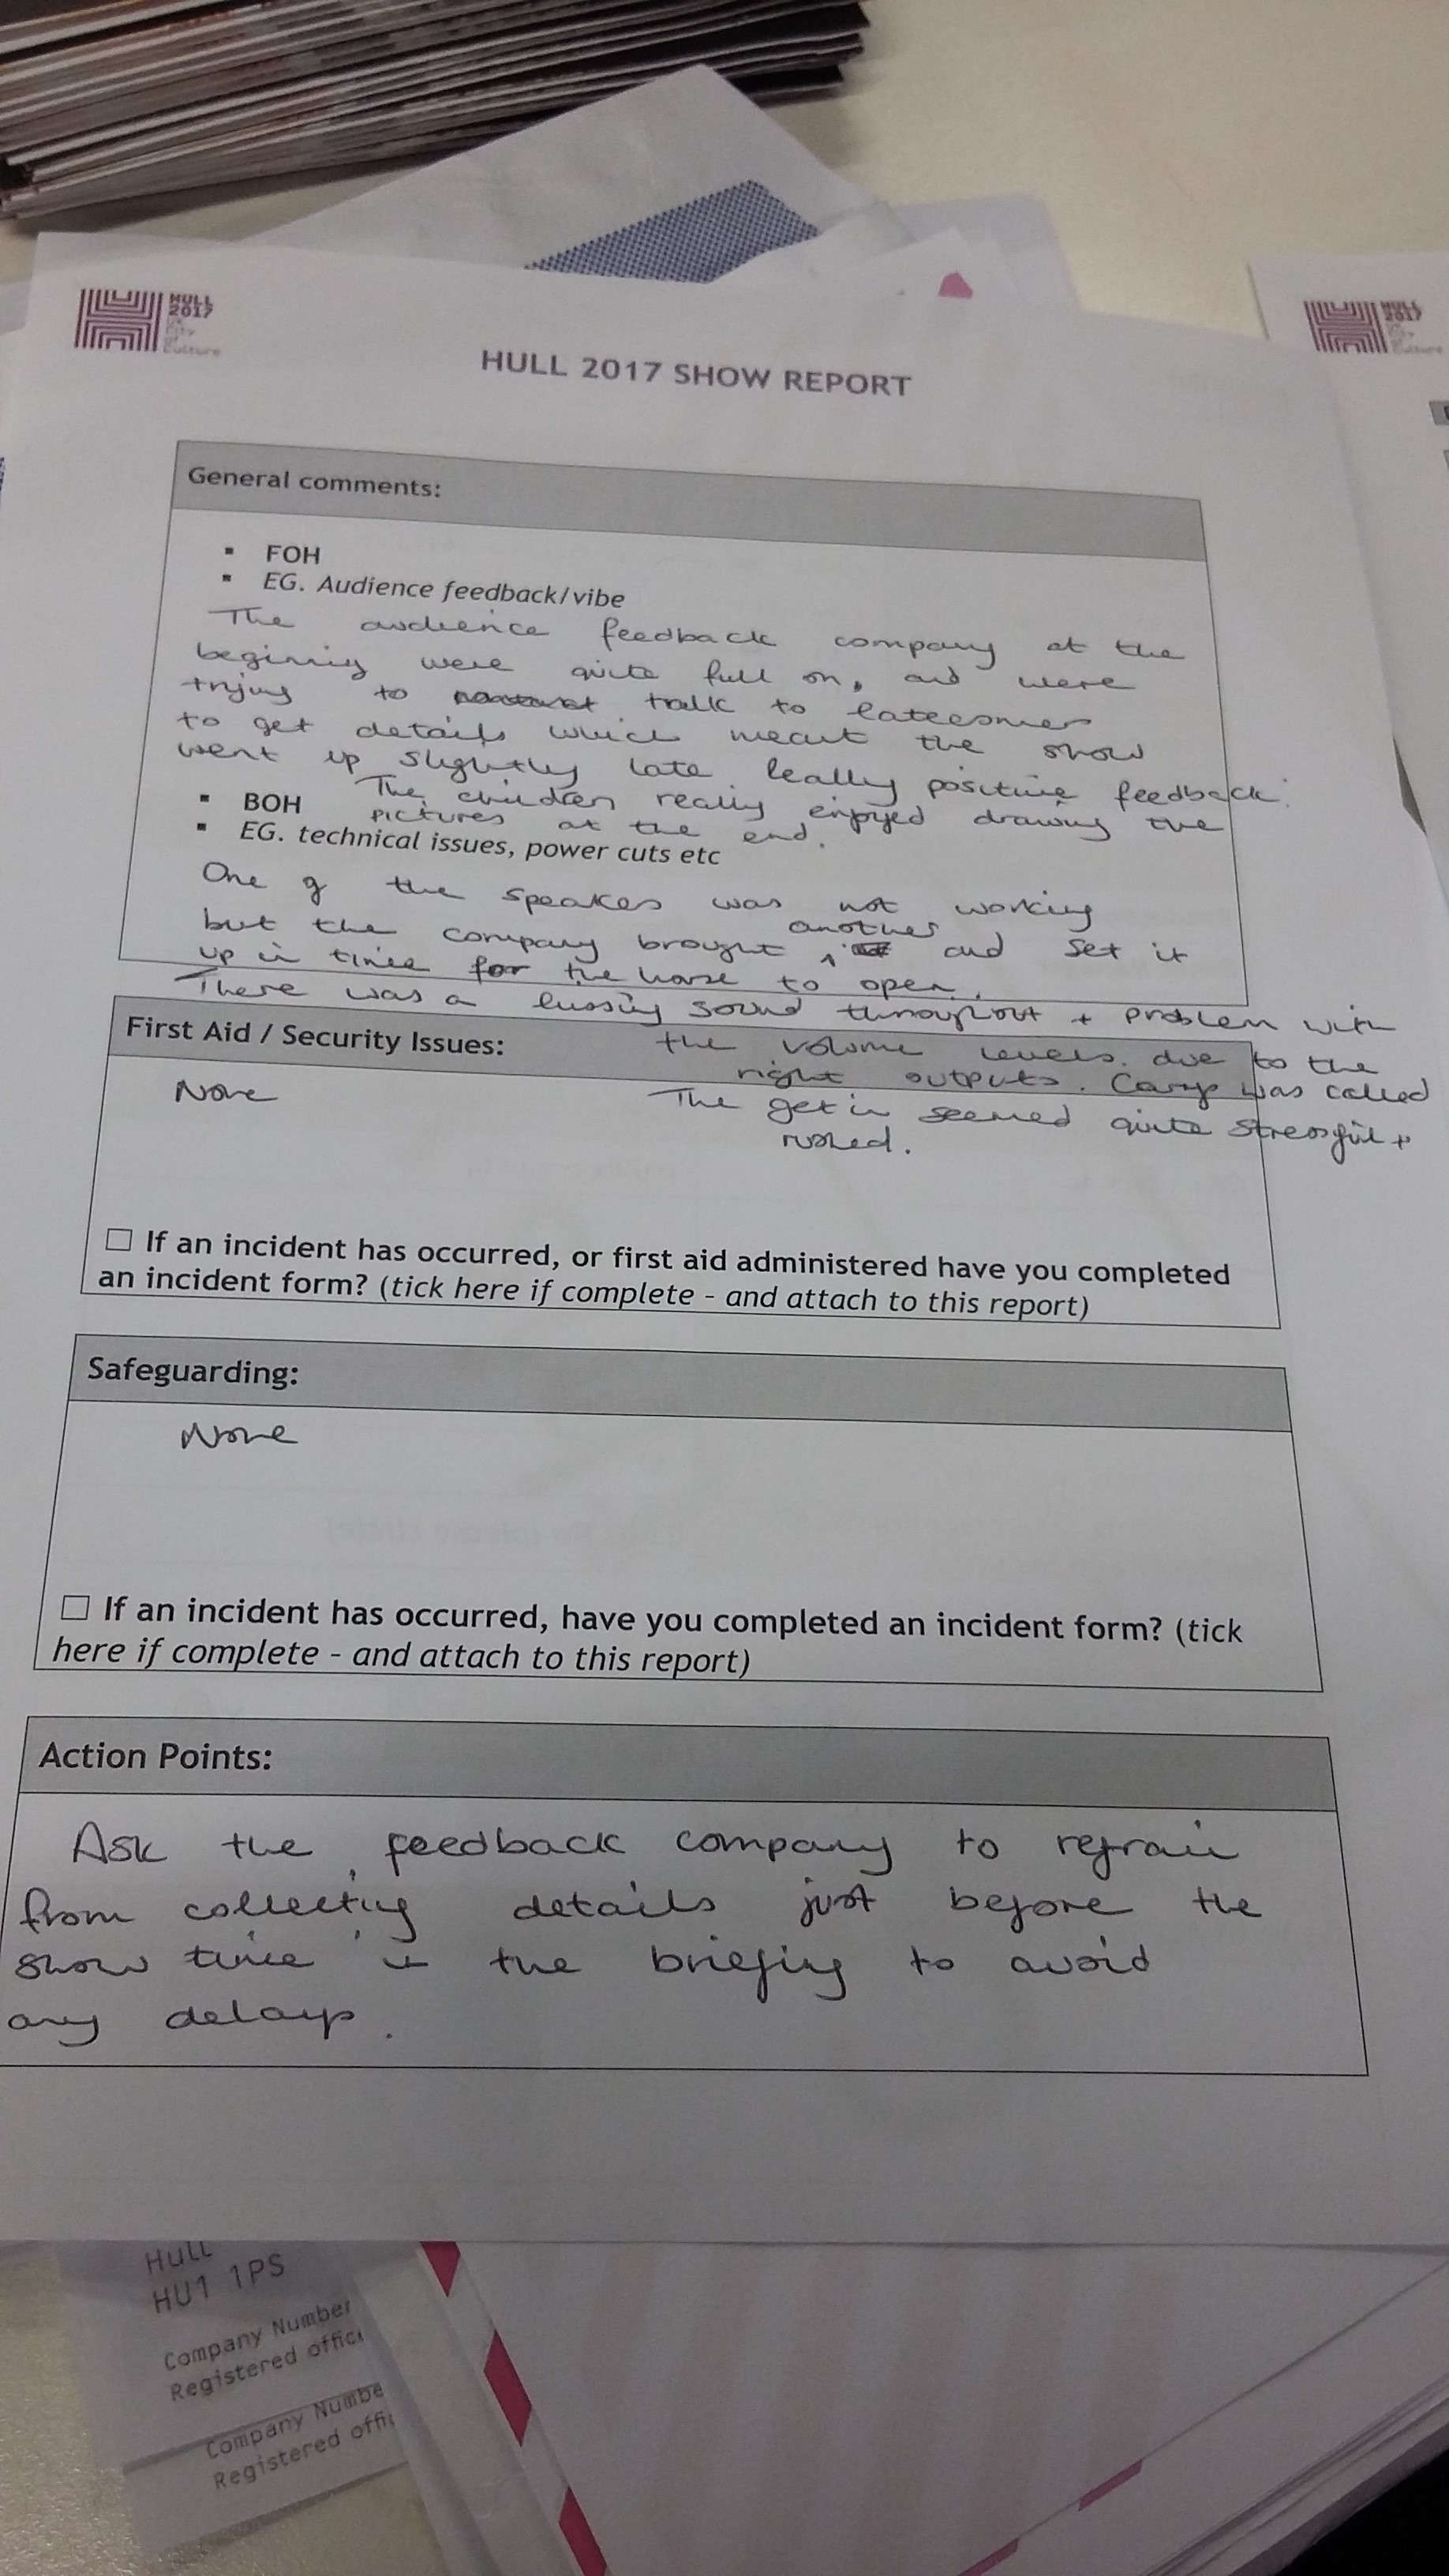 HULL
2017
UK
City
of
Culture
HULL
2017
HULL 2017 SHOW REPORT
General comments:
▪ FOH
▪ EG. Audience feedback/vibe
The audience feedback company at the
beginning were quite full on, and were
trying to talk to latecomers
to get details which meant the show
went up slightly late. Really positive feedback.
The children really enjoyed drawing the
pictures at the end.
▪ BOH
▪ EG. technical issues, power cuts etc
One of the speakers was not working
but the company brought another and set it
up in time for the house to open.
There was a hissing sound throughout + problem with
the volume levels. due to the
right outputs. was called
The get in seemed quite stressful +
rushed.
First Aid / Security Issues:
None
☐ If an incident has occurred, or first aid administered have you completed
an incident form? (tick here if complete - and attach to this report)
Safeguarding:
None
☐ If an incident has occurred, have you completed an incident form? (tick
here if complete - and attach to this report)
Action Points:
Ask the feedback company to refrain
from collecting details just before the
show time in the briefing to avoid
any delays.
Hull
HU1 1PS
Company Number
Registered offic
Company Numbe
Registered offi